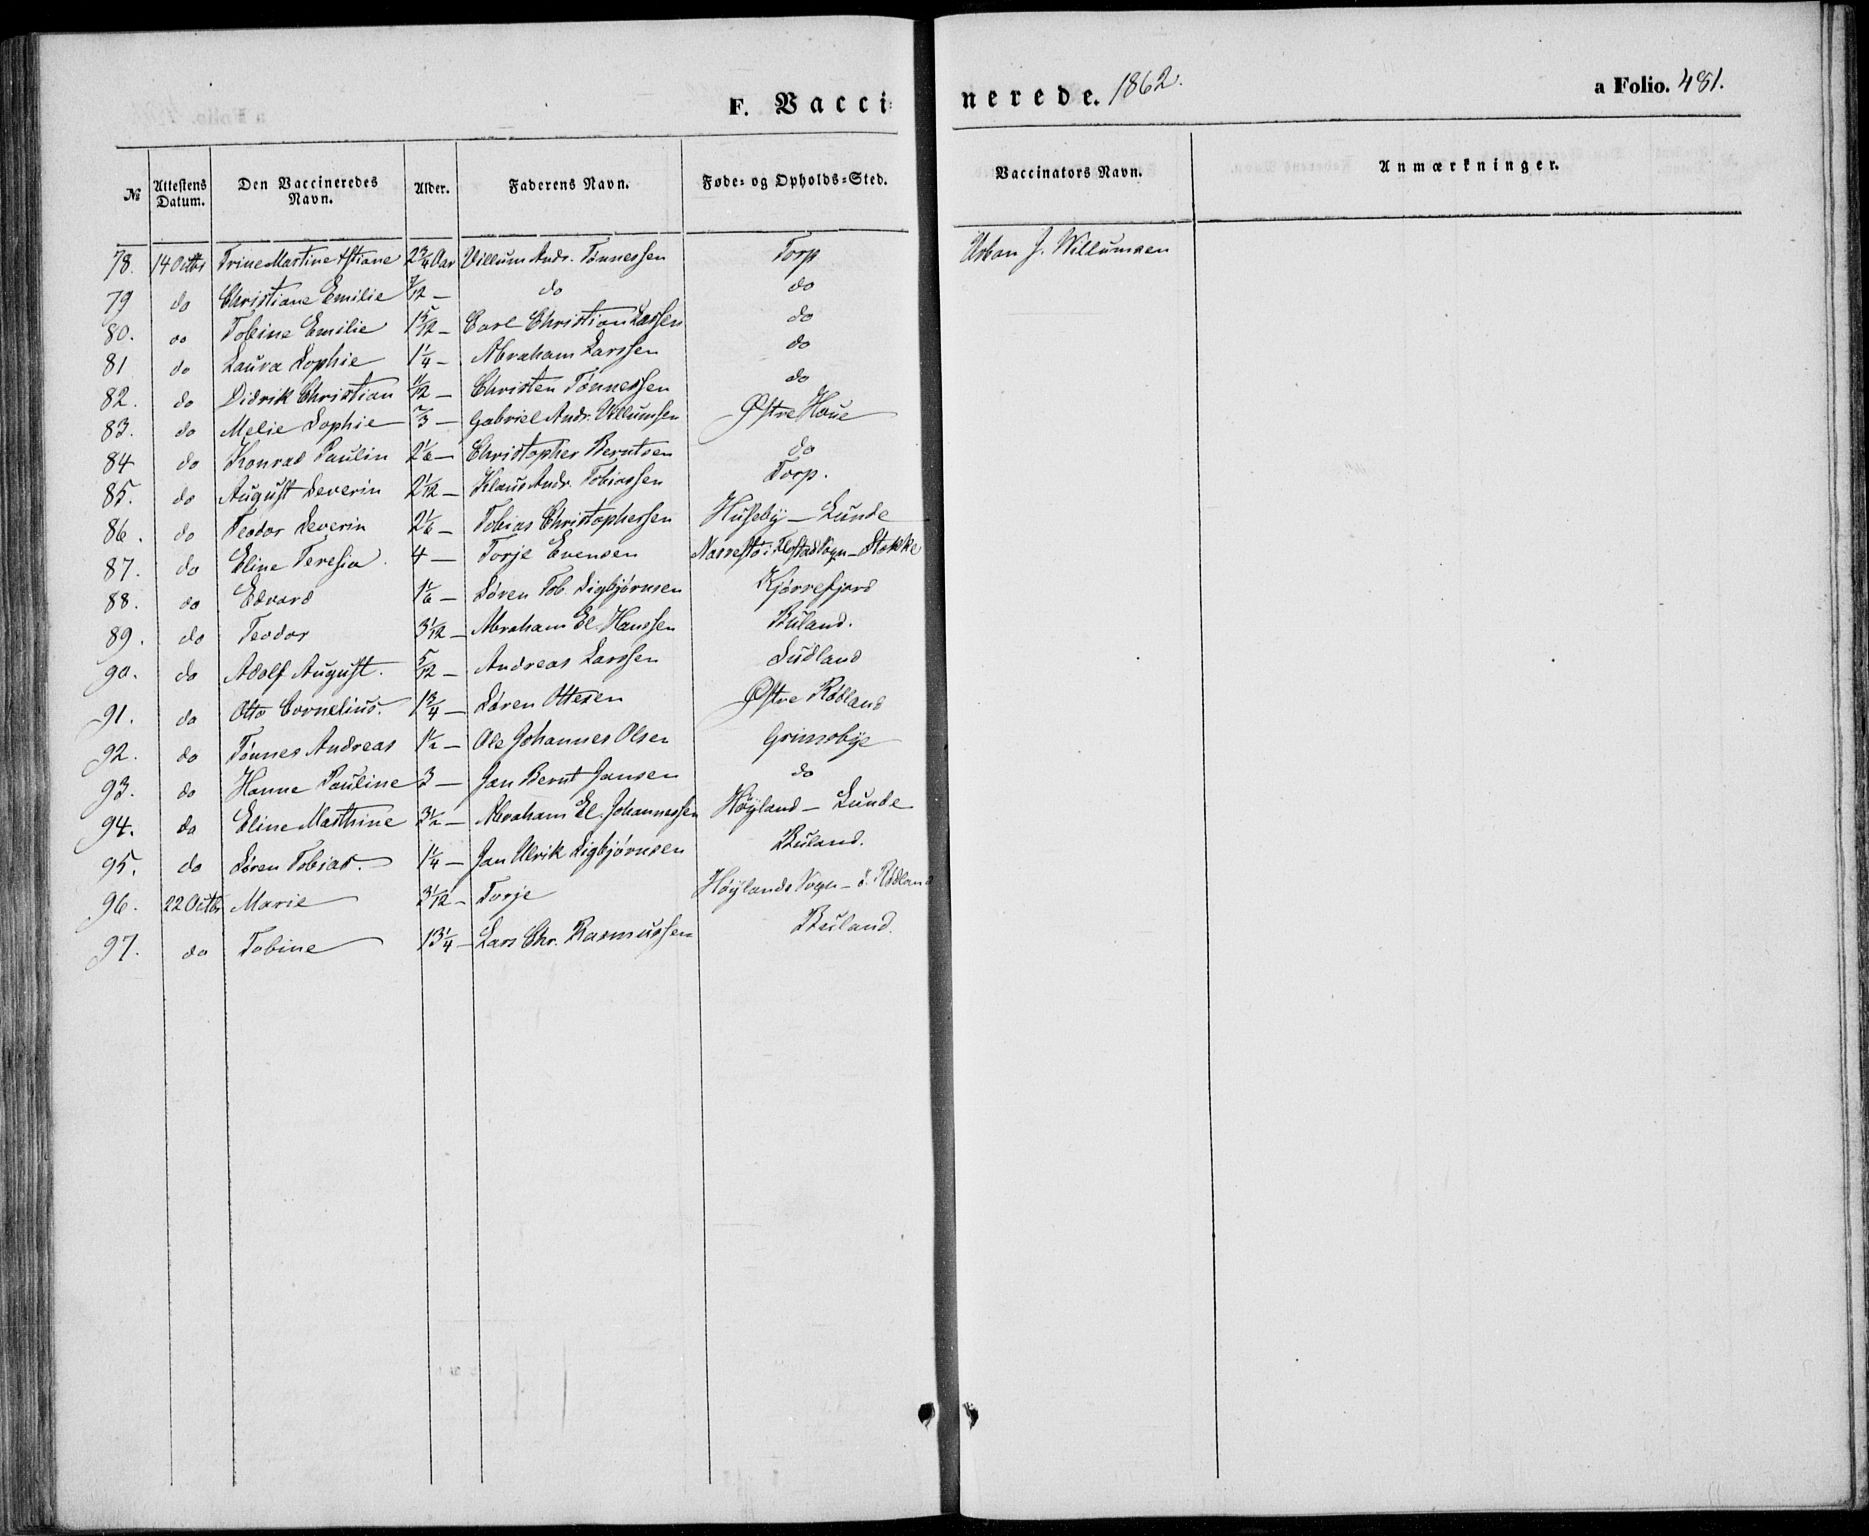 F. Vacci-
nerede. 1862.
a Folio. 481.
№ Attestens Datum. Den Vaccineredes Navn. Alder. Faderens Navn. Føde- og Opholds-Sted. Vaccinators Navn. Anmærkninger.
78. 14 Octbr Trine Martine 2 3/4 Aar Villum Andr. Tønnessen Torp J. Willumsen
79 do Christiane Emilie 7/12 — do do
80. do Tobine Emilie 1 5/12 — Carl Christian Larssen do
81 do Laura Sophie 1 1/4 — Abraham Larssen do
82. do Didrik Christian 11/12 — Christen Tønnessen do
83. do Melie Sophie — Gabriel Andr. Villumsen Østre Haue
84 do Konrad Paulin 2 1/6 — Christopher Berntsen do
85. do August Severin 2 1/12 — Klaus Andr. Tobiassen Torp.
86. do Teodor Severin 2 1/6 — Tobias Christophersen Huseby — Lunde
87. do Eline Teresia. 4 — Torje Evensen Narrestø i Flostad Sogn — Stokke
88. do Edvard 1 1/6 — Søren Tob. Sigbjørnsen Kjørrefjord
89. do Teodor 3 1/12 — Abraham El. Hanssen Buland.
90. do Adolf August. 5/12 — Andreas Larssen Sudland
91. do Otto Cornelius. 1 3/4 — Søren Ottesen Østre Rødland
92. do Tønnes Andreas 1 1/2 — Ole Johannes Olsen Grimsbye
93. do Hanne Pauline 3 — Jan Bernt Jansen do
94. do Eline Marthine 3 1/2 — Abraham El. Johannessen Høyland — Lunde
95. do Søren Tobias. 1 1/4 — Jan Ulrik Sigbjørnsen Buland.
96. 22 Octbr Marie 3 1/12 — Torje Høylands Sogn — Ø. Rødland
97. do Tobine 13 1/4 — Lars Chr. Rasmussen Buland.